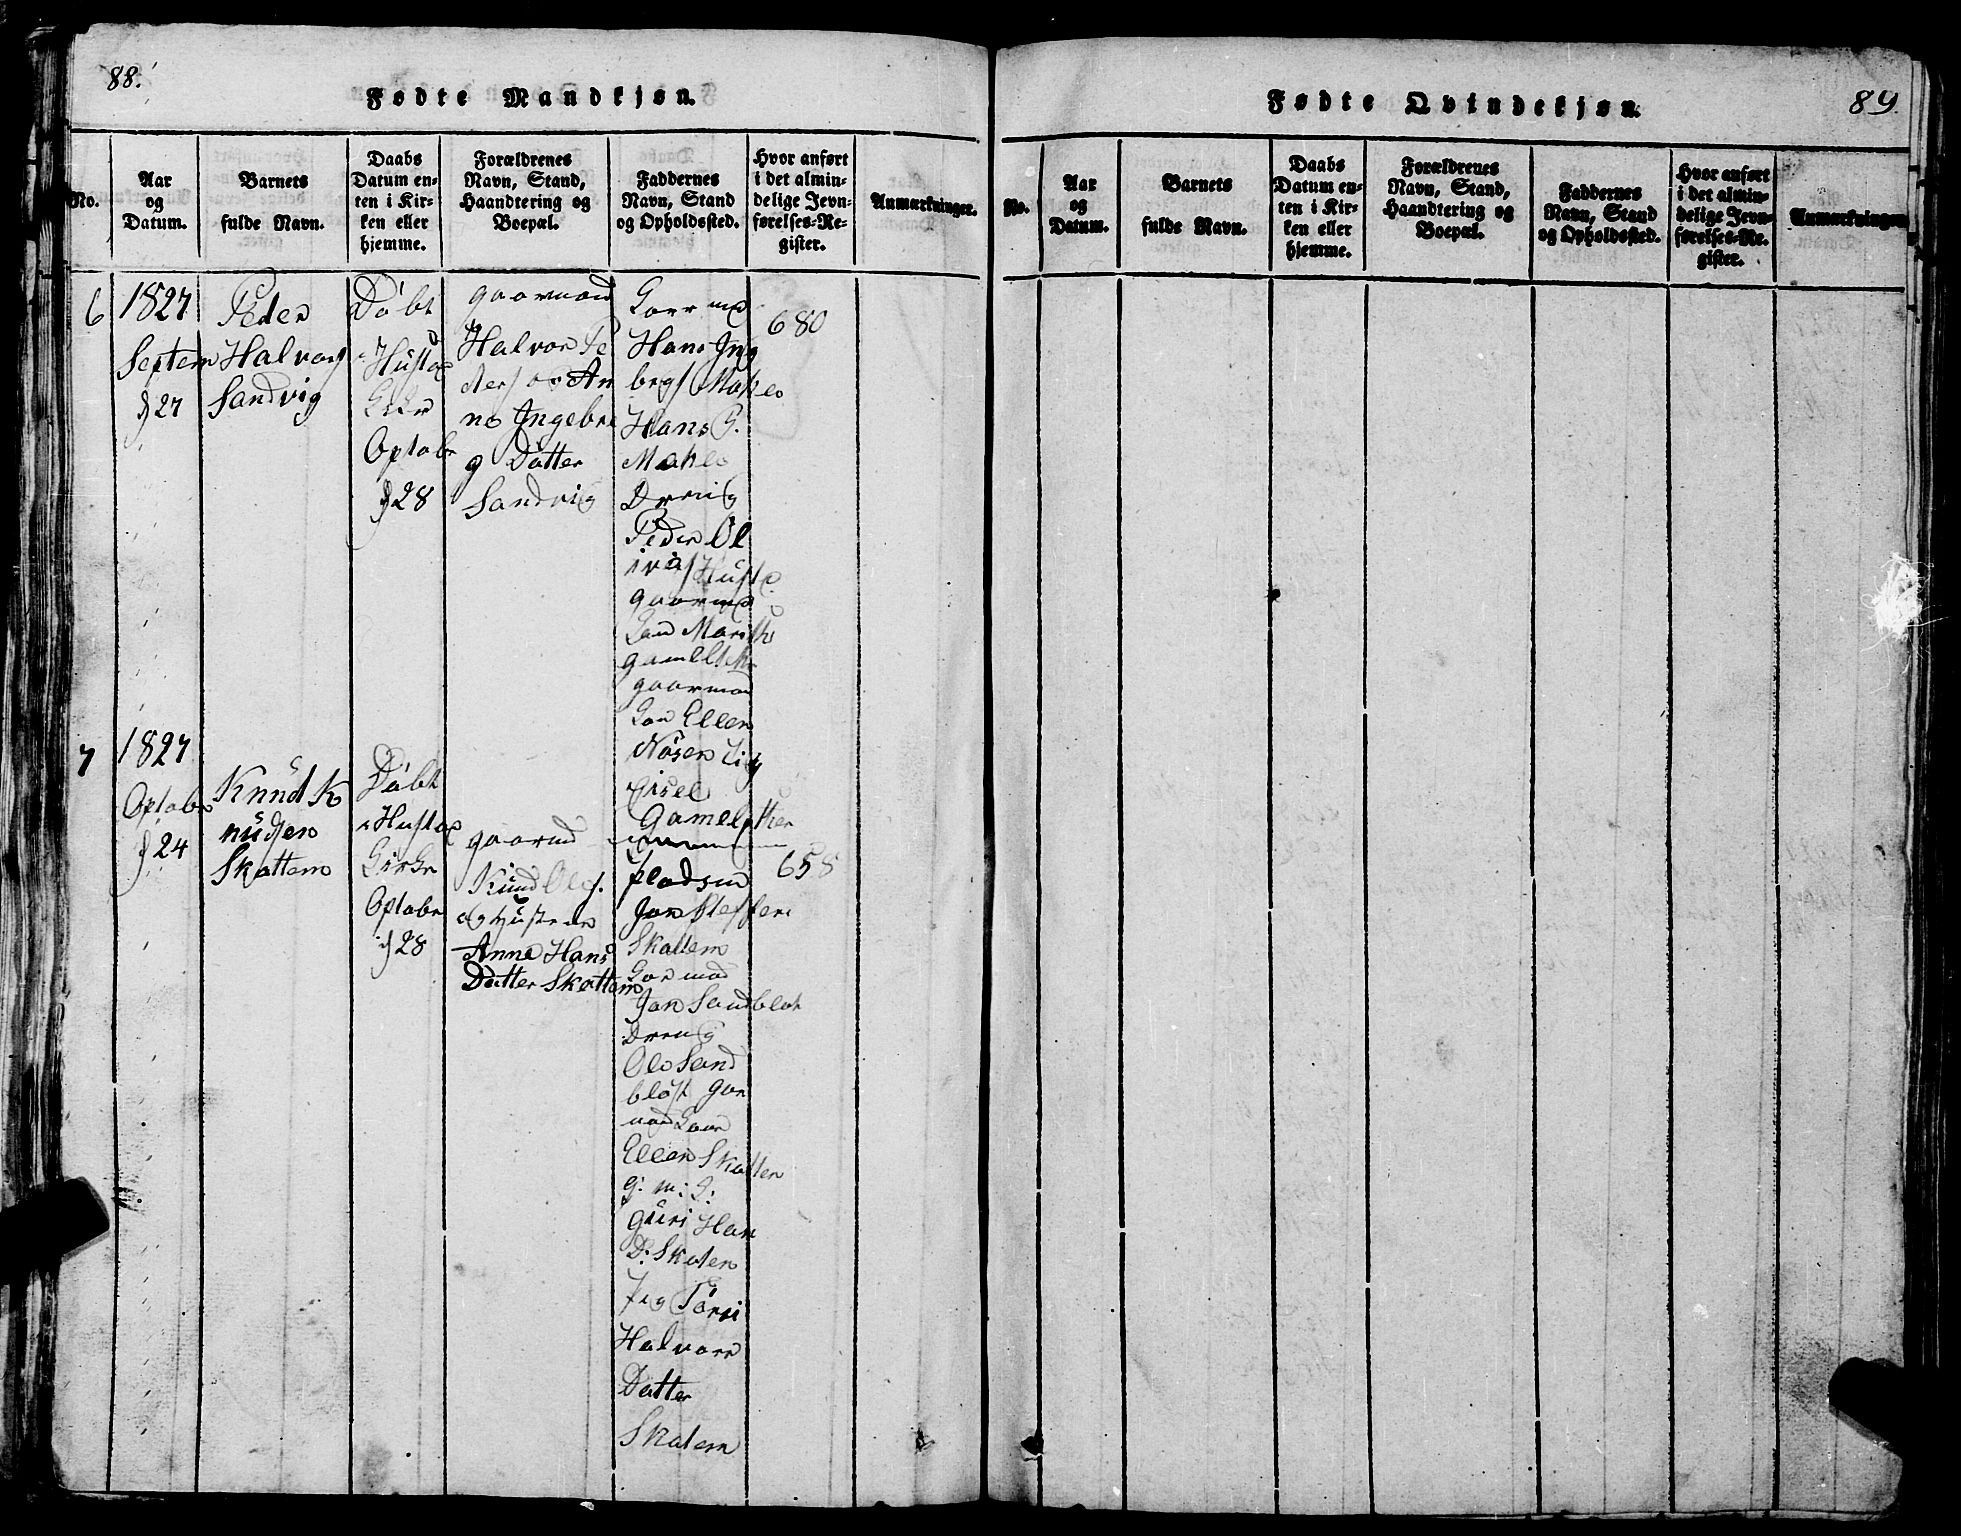 88.
Fødte Mandkjøn.
No.
Aar
og
Datum.
Barnets
fulde Navn.
Daabs
Datum en-
ten i Kir-
ken eller
hjemme.
Forældrenes
Navn, Stand,
Haandtering og
Boepæl.
Faddernes
Navn, Stand
og Opholdssted.
Hvor anført
i det almin-
delige Jevn-
førelses-Re-
gister.
Anmærkninger.
6
1827
Septem
27
Peder
Halvors
Sandvig
Döbt
Kirke
Optobr
28
gaarmand
Halvor Pe
ders og An
ne Ingebre
g Datter
Sandvig
Hans Ing
brgs
Hans P.
Dreng
Peder Ol
gaarmd
Marith
gaarmd
Ellen
680
7
1827
Optobr
24
Knud K
nudsen
Skottem
Döbt
Kirke
Optobr
28
gaarmd
Knud Ols.
og Hustrue
Anne Hans
Datter Skottem
pladsm
Jon Steffen
Skattem
Jon Sandbløt
Dreng
Ole Sand
bløst gar
Ellen Skatten
g: m: K:
Guri Han
D. Skaten
Pig
Halvors
Datter
Skatem
658
89
Fødte Qvindekjøn.
No.
Aar
og
Datum.
Barnets
fulde Navn.
Daabs
Datum en-
ten i Kir-
ken eller
hjemme.
Forældrenes
Navn, Stand,
Haandtering og
Boepæl.
Faddernes
Navn, Stand
og Opholdssted.
Hvor anført
i det almin-
delige Jevn-
førelses-Re-
gister.
Anmærkninger